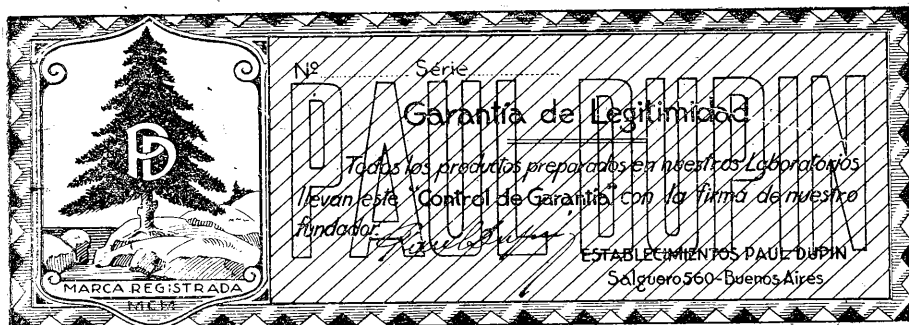 PD
MARCA REGISTRADA
MCM
PAUL DUPIN
Nº Série
Garantía de Legitimidad
Todos los productos preparados en nuestros Laboratorios
llevan este "Control de Garantía" con la firma de nuestro
fundador.
Paul Dupin
ESTABLECIMIENTOS PAUL DUPIN
Salguero 560-Buenos Aires